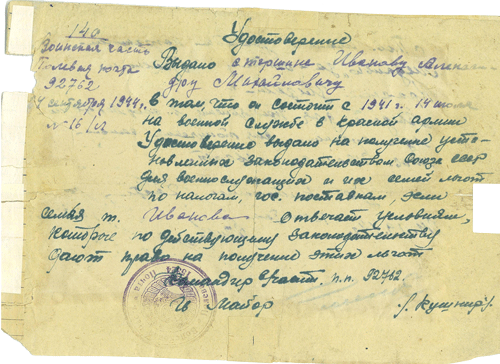 140
Удостоверение
Воинская часть
Выдано старшине Иванову Алексан
Полевая почта
дру Михайловичу
92762
4 сентября 1944г.
в том, что он состоит с 1941г. 14 июля
№16/с
на военной службе в красной армии
Удостоверение выдано на получение уста-
новленных законодательством Союза ССР
для военнослужащих и их семей льгот
по налогам, гос. поставкам, если
семья т. Иванова отвечает условиям,
которые по действующему законодательству
дают право на получение этих льгот.
Командир части п.п. 92762
Майор /Кушнир/.